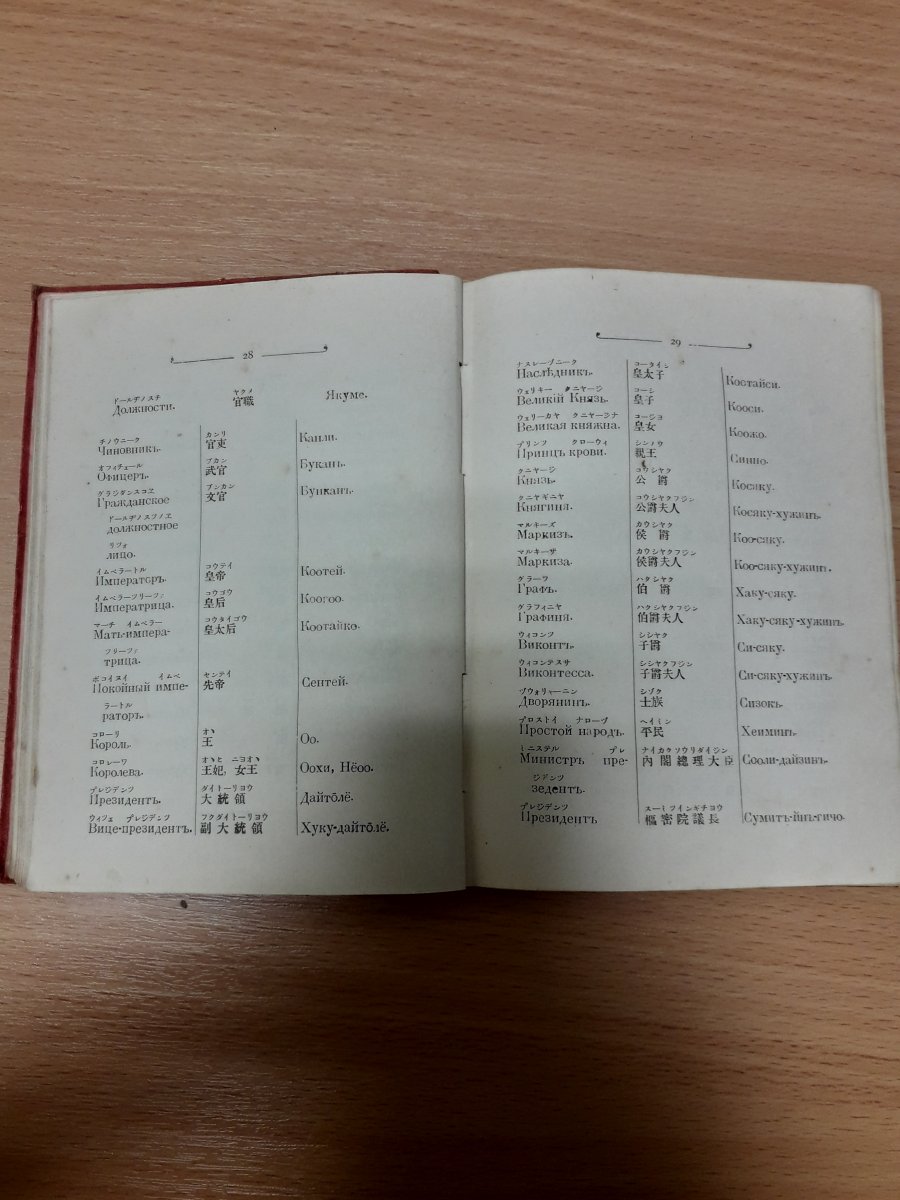 28
ドールヂノスチ ヤクメ
Должности. 官職 Якуме.
チノウニーク カンリ
Чиновникъ. 官吏 Канли.
オフィチェール ブカン
Офицеръ. 武官 Буканъ.
グラジダンスコヱ ブンカン
Гражданское 文官 Бунканъ.
ドールヂノスツノヱ
должностное
リツォ
лицо.
イムペラートル コウテイ
Императоръ. 皇帝 Коотей.
イムペラーツリーツァ コウゴウ
Императрица. 皇后 Коогоо.
マーチ イムペラー コウタイゴウ
Мать-импера- 皇太后 Коотайко.
ツリーツァ
трица.
ポコイヌイ イムペ センテイ
Покойный импе- 先帝 Сентей.
ラートル
раторъ.
コローリ オヽ
Король. 王 Оо.
コロレーワ オヽヒ ニヨオヽ
Королева. 王妃, 女王 Оохи, Нёоо.
プレジデンツ ダイトーリヨウ
Президентъ. 大統領 Дайто̄лё.
ウィツェ プレジデンツ フクダイトーリヨウ
Вице-президентъ. 副大統領 Хуку-дайто̄лё.
29
ナスレーヅニーク コータイシ
Наслѣдникъ. 皇太子 Коотайси.
ウェリキー クニヤージ コーシ
Великій Князь. 皇子 Кооси.
ウェリーカヤ クニヤージナ コージョ
Великая княжна. 皇女 Коожо.
プリンツ クローウィ シンノウ
Принцъ крови. 親王 Синно.
クニヤージ コウシヤク
Князь. 公爵 Косяку.
クニヤギニヤ コウシヤクフジン
Княгиня. 公爵夫人 Косяку-хужинъ.
マルキーズ カウシヤク
Маркизъ. 侯爵 Коо-сяку.
マルキーサ カウシヤクフジン
Маркиза. 侯爵夫人 Коо-сяку-хужинъ.
グラーフ ハクシヤク
Графъ. 伯爵 Хаку-сяку.
グラフィニヤ ハクシヤクフジン
Графиня. 伯爵夫人 Хаку-сяку-хужинъ.
ウィコンツ シシヤク
Виконтъ. 子爵 Си-сяку.
ウィコンテスサ シシヤクフジン
Виконтесса. 子爵夫人 Си-сяку-хужинъ.
ヅウォリャーニン シゾク
Дворянинъ. 士族 Сизокъ.
プロストイ ナローヅ ヘイミン
Простой народъ. 平民 Хеиминъ.
ミニステル プレ ナイカクソウリダイジン
Министръ пре- 内閣總理大臣 Сооли-дайзинъ.
ジデンツ
зедентъ.
プレジデンツ スーミツインギチヨウ
Президентъ 樞密院議長 Сумитъ-инъ-гичо.